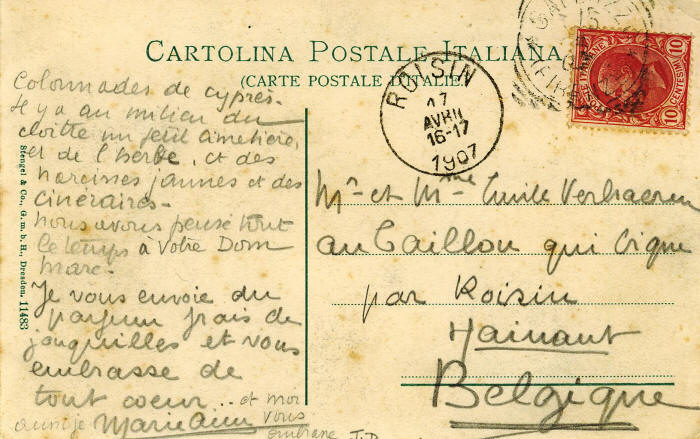 CARTOLINA POSTALE ITALIANA
(CARTE POSTALE D'ITALIE)
ROISIN
17
AVRIL
16-17
1907
10 10
CENTESIMI
Colonnades de cyprès.
Il y a au milieu du
cloître un petit cimetière,
et de l'herbe, et des
narcisses jaunes et des
cinéraires -
nous avons pensé tout
le temps à votre Dom
Marc.
Je vous envoie du
parfum frais de
jonquilles et vous
embrasse de
tout coeur .. et moi
aussi je vous
Marianne
embrasse
Stengel & Co., G. m. b. H., Dresden. 11483
Mr et Mme Emile Verhaeren
au Caillou qui bique
par Roisin
Hainaut
Belgique